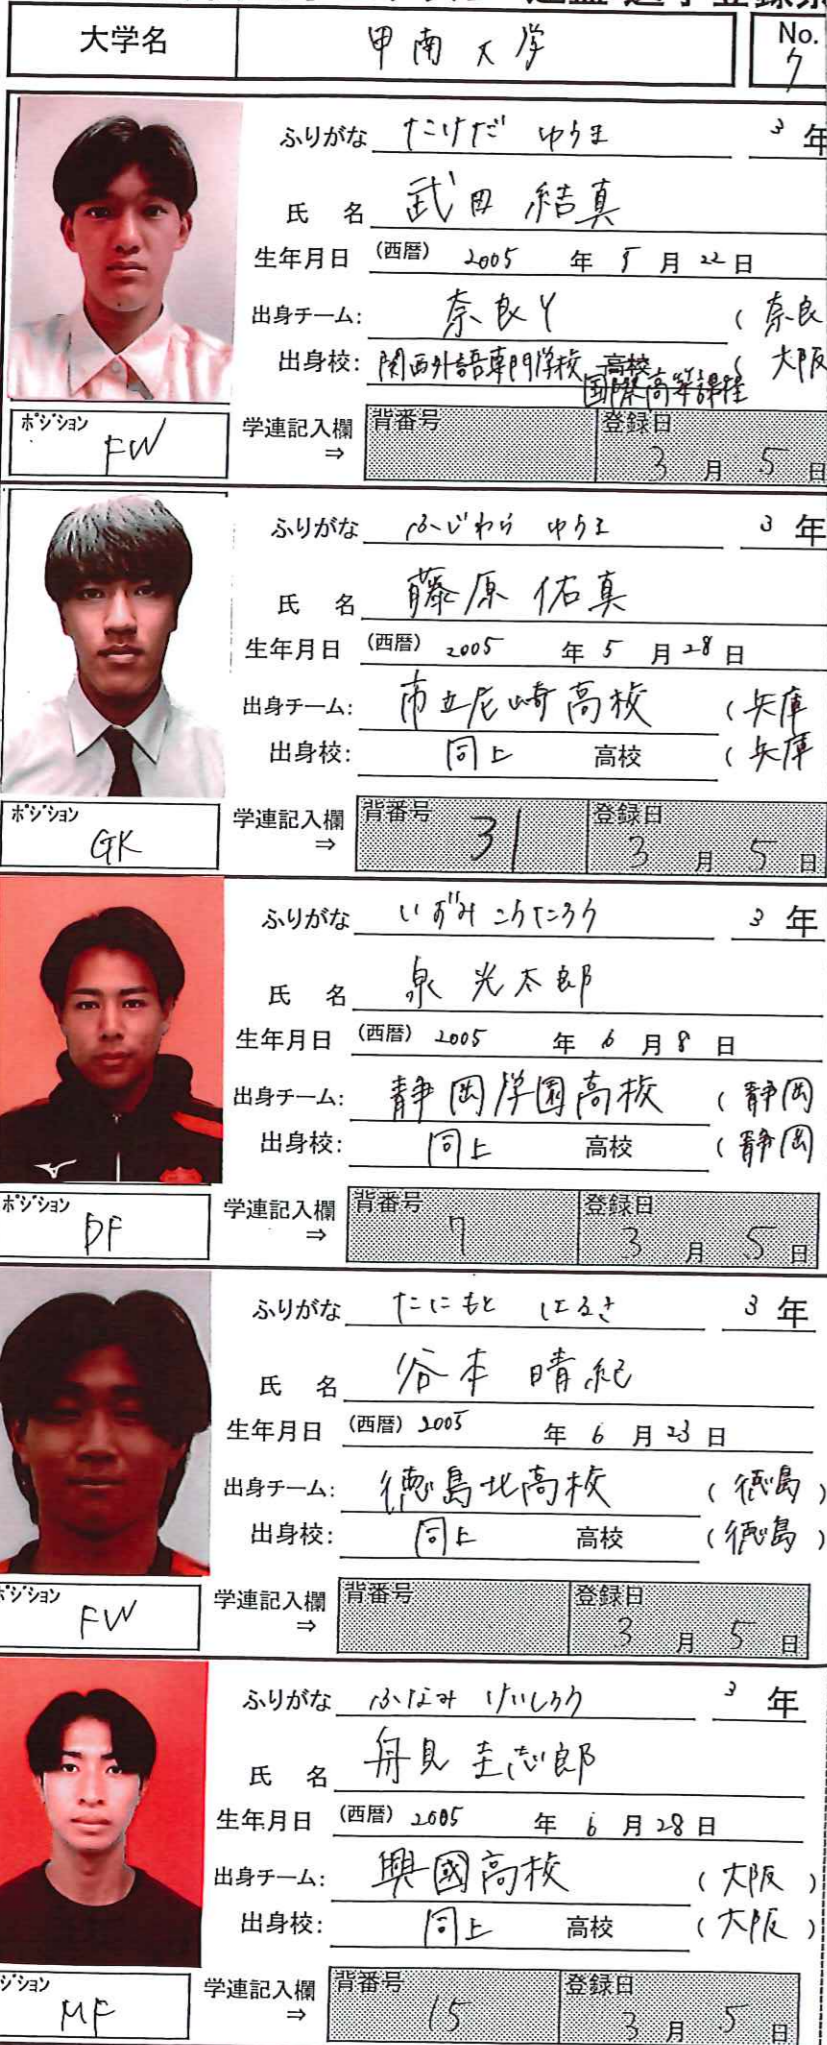 選手登録票
大学名 甲南大学 No. 7
ふりがな たけだ ゆうま 3 年
氏 名 武田 結真
生年月日 (西暦) 2005 年 5 月 22 日
出身チーム: 奈良Y (奈良
出身校: 関西外語専門学校 高校 (大阪
国際高等課程
ポジション FW 学連記入欄 ⇒ 背番号 登録日 3 月 5 日
ふりがな ふじわら ゆうま 3 年
氏 名 藤原 佑真
生年月日 (西暦) 2005 年 5 月 28 日
出身チーム: 市立尼崎高校 (兵庫
出身校: 同上 高校 (兵庫
ポジション GK 学連記入欄 ⇒ 背番号 31 登録日 3 月 5 日
ふりがな いずみ こうたろう 3 年
氏 名 泉 光太郎
生年月日 (西暦) 2005 年 6 月 8 日
出身チーム: 静岡学園高校 (静岡
出身校: 同上 高校 (静岡
ポジション DF 学連記入欄 ⇒ 背番号 7 登録日 3 月 5 日
ふりがな たにもと はるき 3 年
氏 名 谷本 晴紀
生年月日 (西暦) 2005 年 6 月 23 日
出身チーム: 徳島北高校 (徳島)
出身校: 同上 高校 (徳島)
ポジション FW 学連記入欄 ⇒ 背番号 登録日 3 月 5 日
ふりがな ふなみ けいしろう 3 年
氏 名 舟見 圭志郎
生年月日 (西暦) 2005 年 6 月 28 日
出身チーム: 興國高校 (大阪)
出身校: 同上 高校 (大阪)
ジション MF 学連記入欄 ⇒ 背番号 15 登録日 3 月 5 日